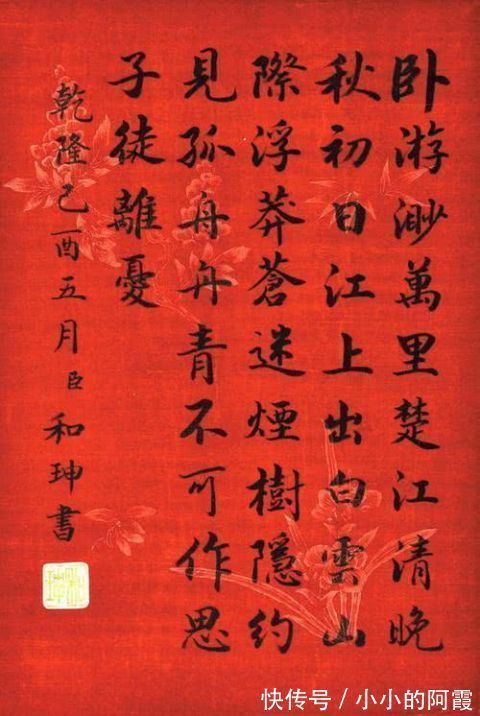 卧游渺萬里楚江清晚
秋初日江上出白雲山
際浮莽蒼迷煙樹隱約
見孤舟丹青不可作思
子徒離憂
乾隆己酉五月臣和珅書
快传号/小小的阿霞